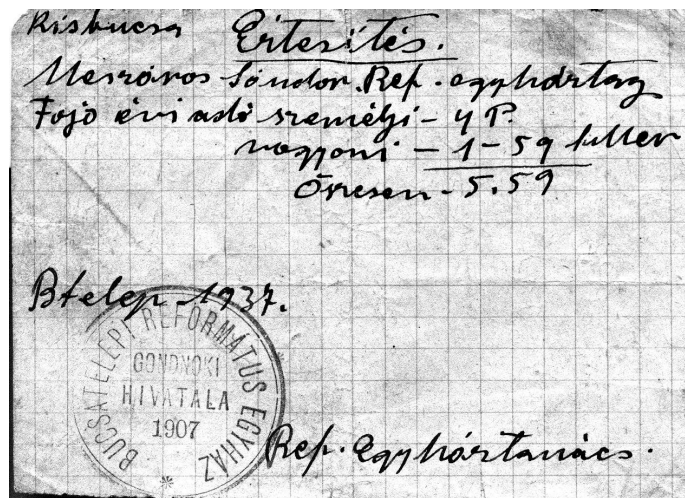 Kisbucsa Értesítés.
Meszáros Sándor. Ref. egyháztag
Fojó évi adó személyi - 4 P.
vagyoni - 1 - 59 filler
Öszesen - 5.59
Btelep 1937.
BUCSATELEPI REFORMÁTUS EGYHÁZ
GONDNOKI
HIVATALA
1907
Ref. Egyháztanács.